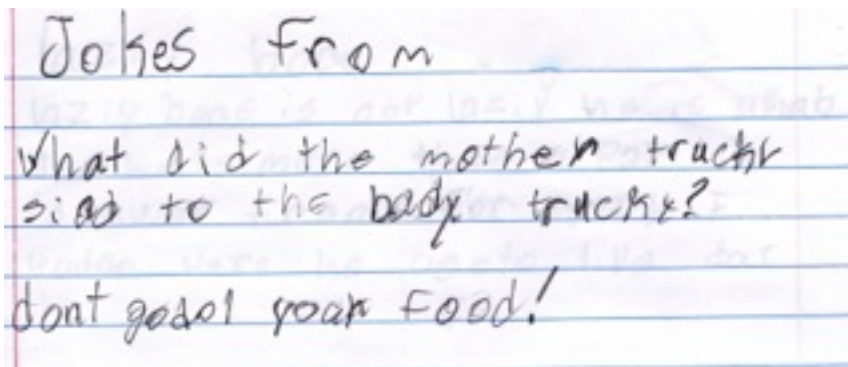 Jokes from
What did the mother truckr
siad to the bady trucky?
dont godol your food!